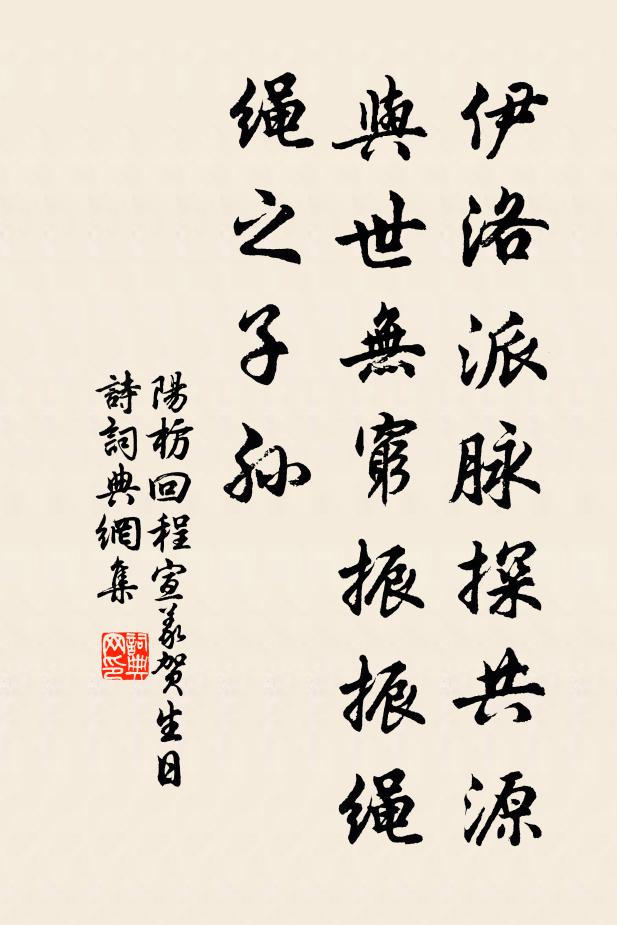 伊洛派脉探共源
與世無窮振振绳
绳之子孙
陽枋回程宣义贺生日
詩詞典網集
詞典网印